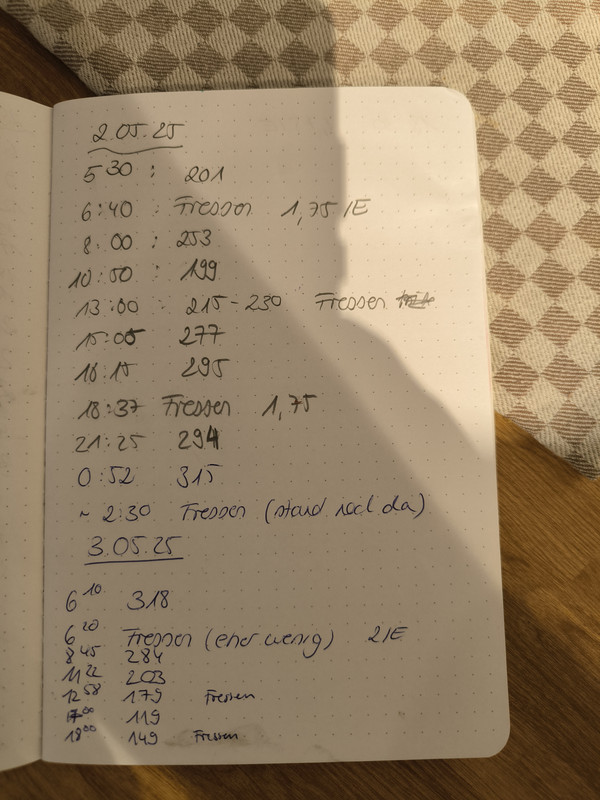 2.05.25
5 30 : 201
6:40 : Fressen 1,75 IE
8:00 : 253
10:50 : 199
13:00 : 215-230 Fressen
15:05 277
16:15 295
18:37 Fressen 1,75
21:25 294
0:52 315
~ 2:30 Fressen (stand noch da)
3.05.25
6 10 318
6 20 Fressen (eher wenig) 2 IE
8 45 284
11 22 203
12 58 179 Fressen
17 00 119
18 00 149 Fressen